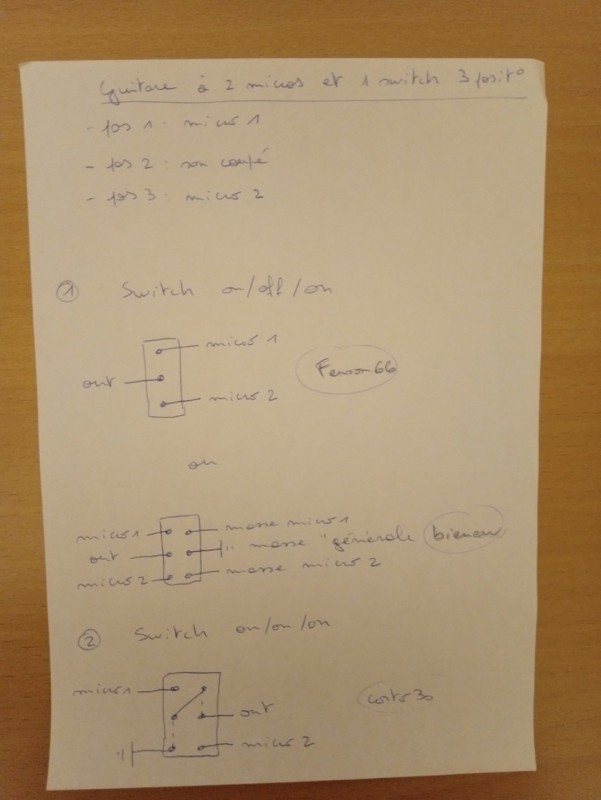 Guitare à 2 micros et 1 switch 3 posit°
- pos 1 : micro 1
- pos 2 : son coupé
- pos 3 : micro 2
① Switch on/off/on
micro 1
out
Fenson66
micro 2
ou
micro 1 masse micro 1
out masse "générale bieneux
micro 2 masse micro 2
② Switch on/on/on
micro 1
out
micro 2